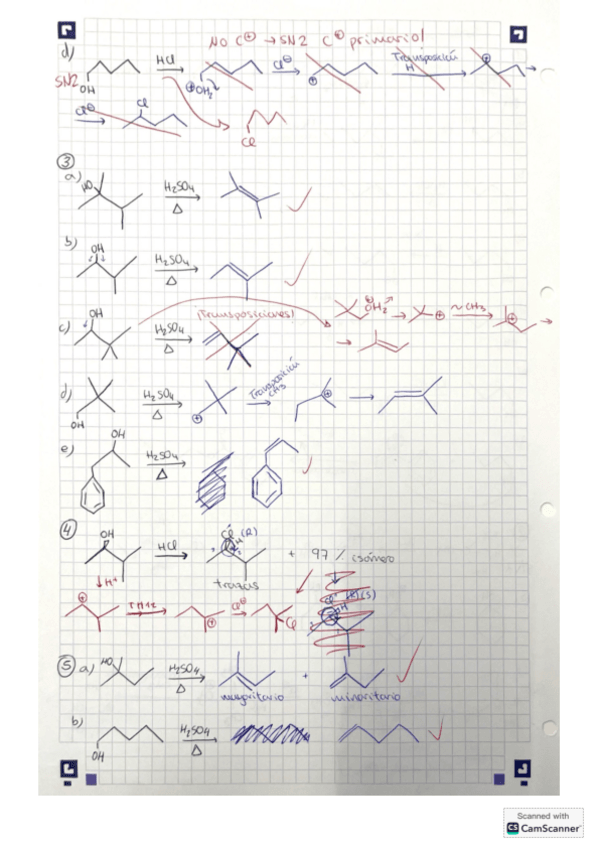 No C⊕ → SN2 C⊕ primario!
d) HCl Cl⊖ Transposición
SN2 OH ⊕OH₂ H ⊕ ⊕
Cl⊖ Cl
Cl
③
a) HO H₂SO₄ Δ
b) OH H₂SO₄ Δ
c) OH H₂SO₄ Δ ¡Transposiciones! ⊕OH₂ ⊕ ~CH₃ ⊕
d) OH H₂SO₄ Δ ⊕ Transposición CH₃ ⊕
e) OH H₂SO₄ Δ
④ OH HCl Cl H (R) + 97 % isómero
trazas
↓ H⁺
⊕ ⊕ Cl⊖ Cl
⑤ a) HO H₂SO₄ Δ +
mayoritario minoritario
b) OH H₂SO₄ Δ
Scanned with
CS CamScanner